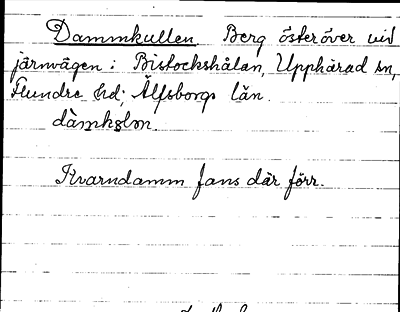 Dammkullen Berg österöver vid
järnvägen: Bistockshålan, Upphärad sn,
Flundre hd, Älfsborgs län.
dàmkɷlǝn.
Kvarndamm fans där förr.